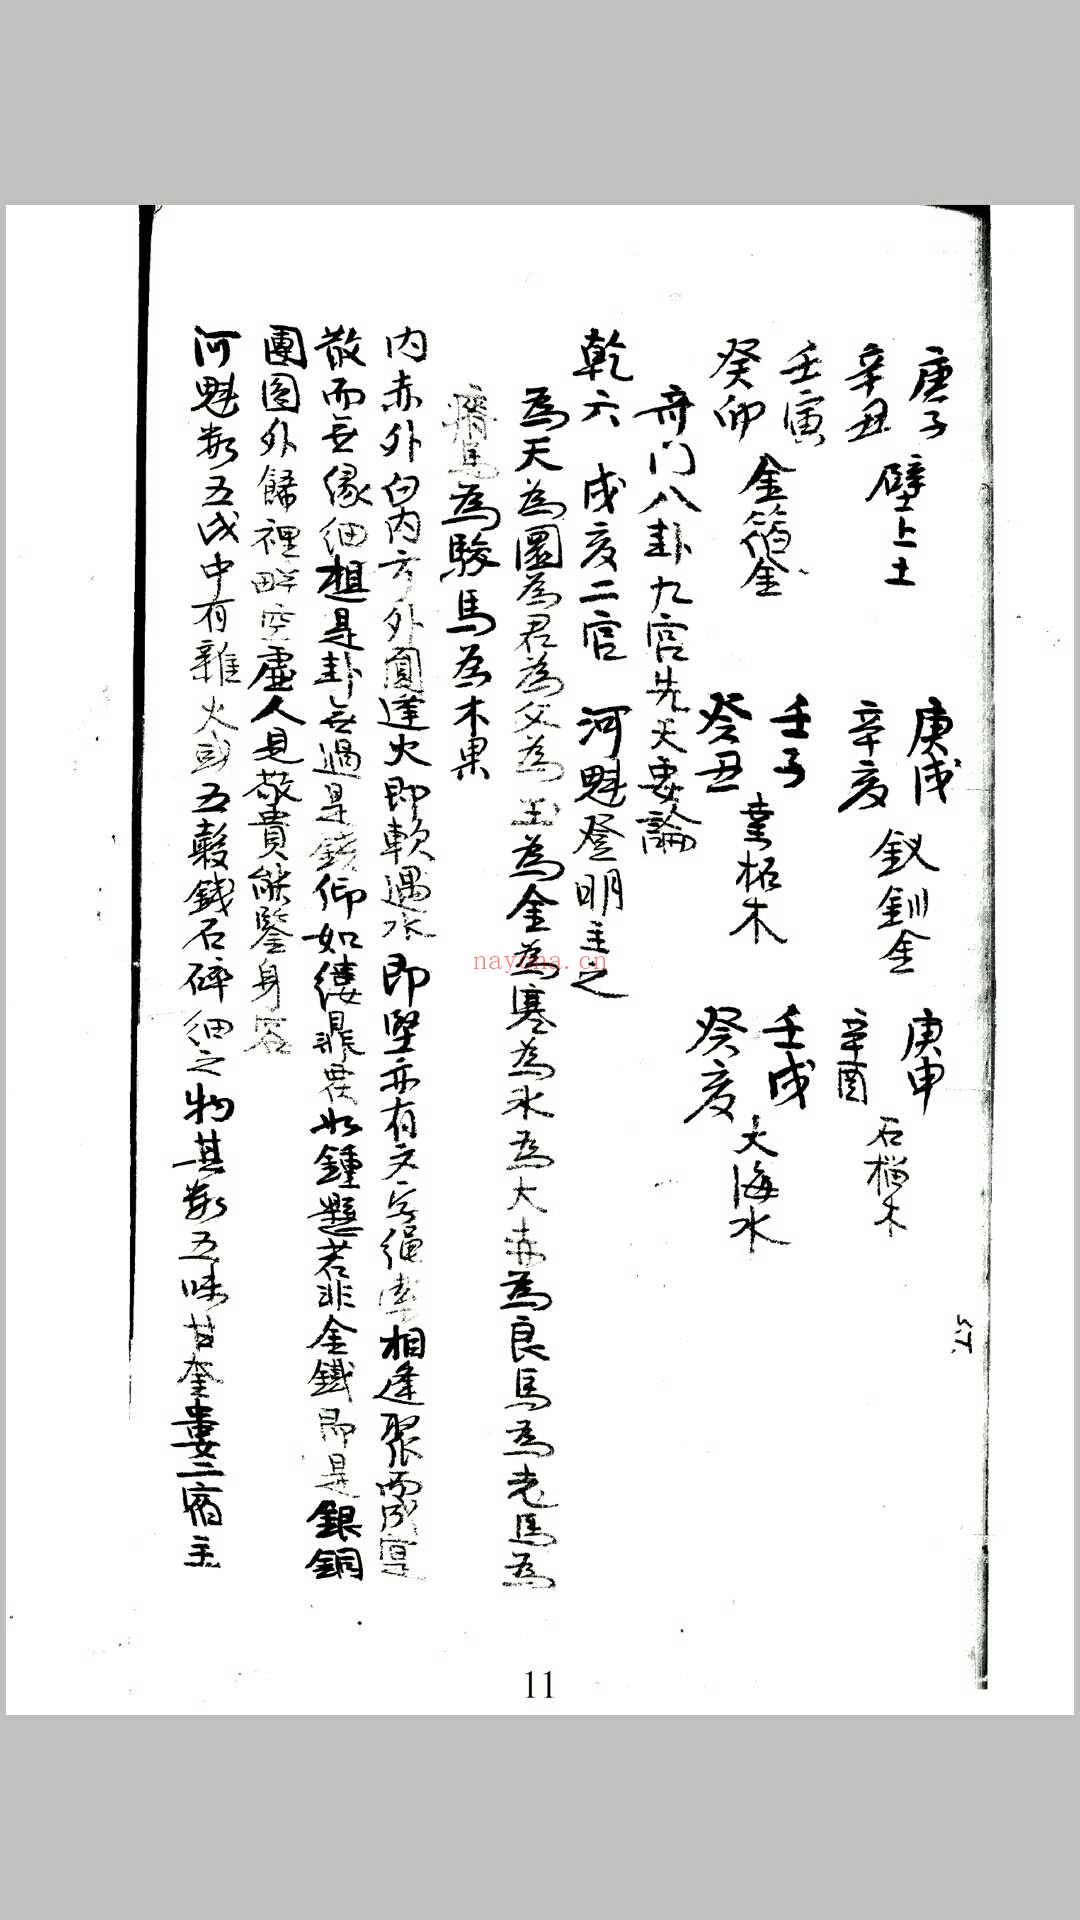 庚子
辛丑 壁上土
壬寅
癸卯 金箔金
庚戌
辛亥 釵釧金
壬子
癸丑 桑柘木
庚申
辛酉 石榴木
壬戌
癸亥 大海水
奇门八卦九宮先天要論
乾六 戌亥二宫 河魁登明主之
為天為圜為君為父為玉為金為寒為氷為大赤為良馬為老馬為
瘠馬為駿馬為木果
内赤外白内方外圓逢火即軟遇水即堅亦有文 繩 相逢聚而成
散而无緣細想是卦无過是錢仰如 鍾懸若非金鐵即是銀銅
團圆外 裡 空虛人見敬貴能鑒身容
河魁数五戌中有雜火 五穀錢石碎細之物其数五味甘奎婁二宿主
nayona.cn
11